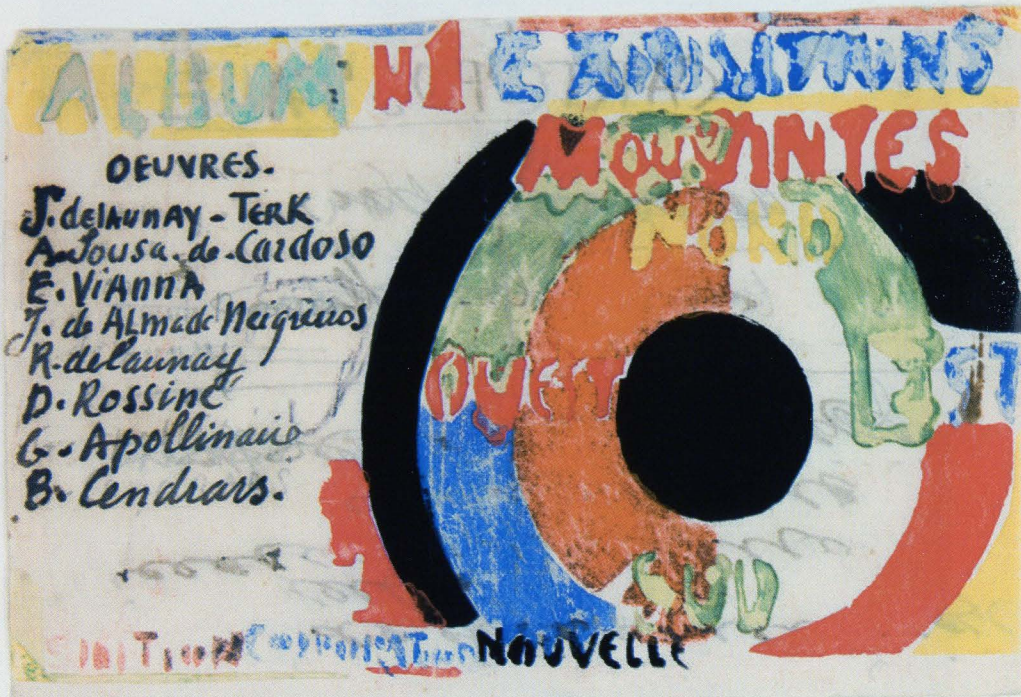 ALBUM N1 EXPOSITIONS
MOUVANTES
NORD
OEUVRES.
S. delAUNAY - TERK
A. Sousa. de. Cardoso
E. ViAnnA
J. de ALmada Neigreiros
R. delaunay
D. Rossiné
G. Apollinaire
B. Cendrars.
OUEST
EST
SUD
NOUVELLE